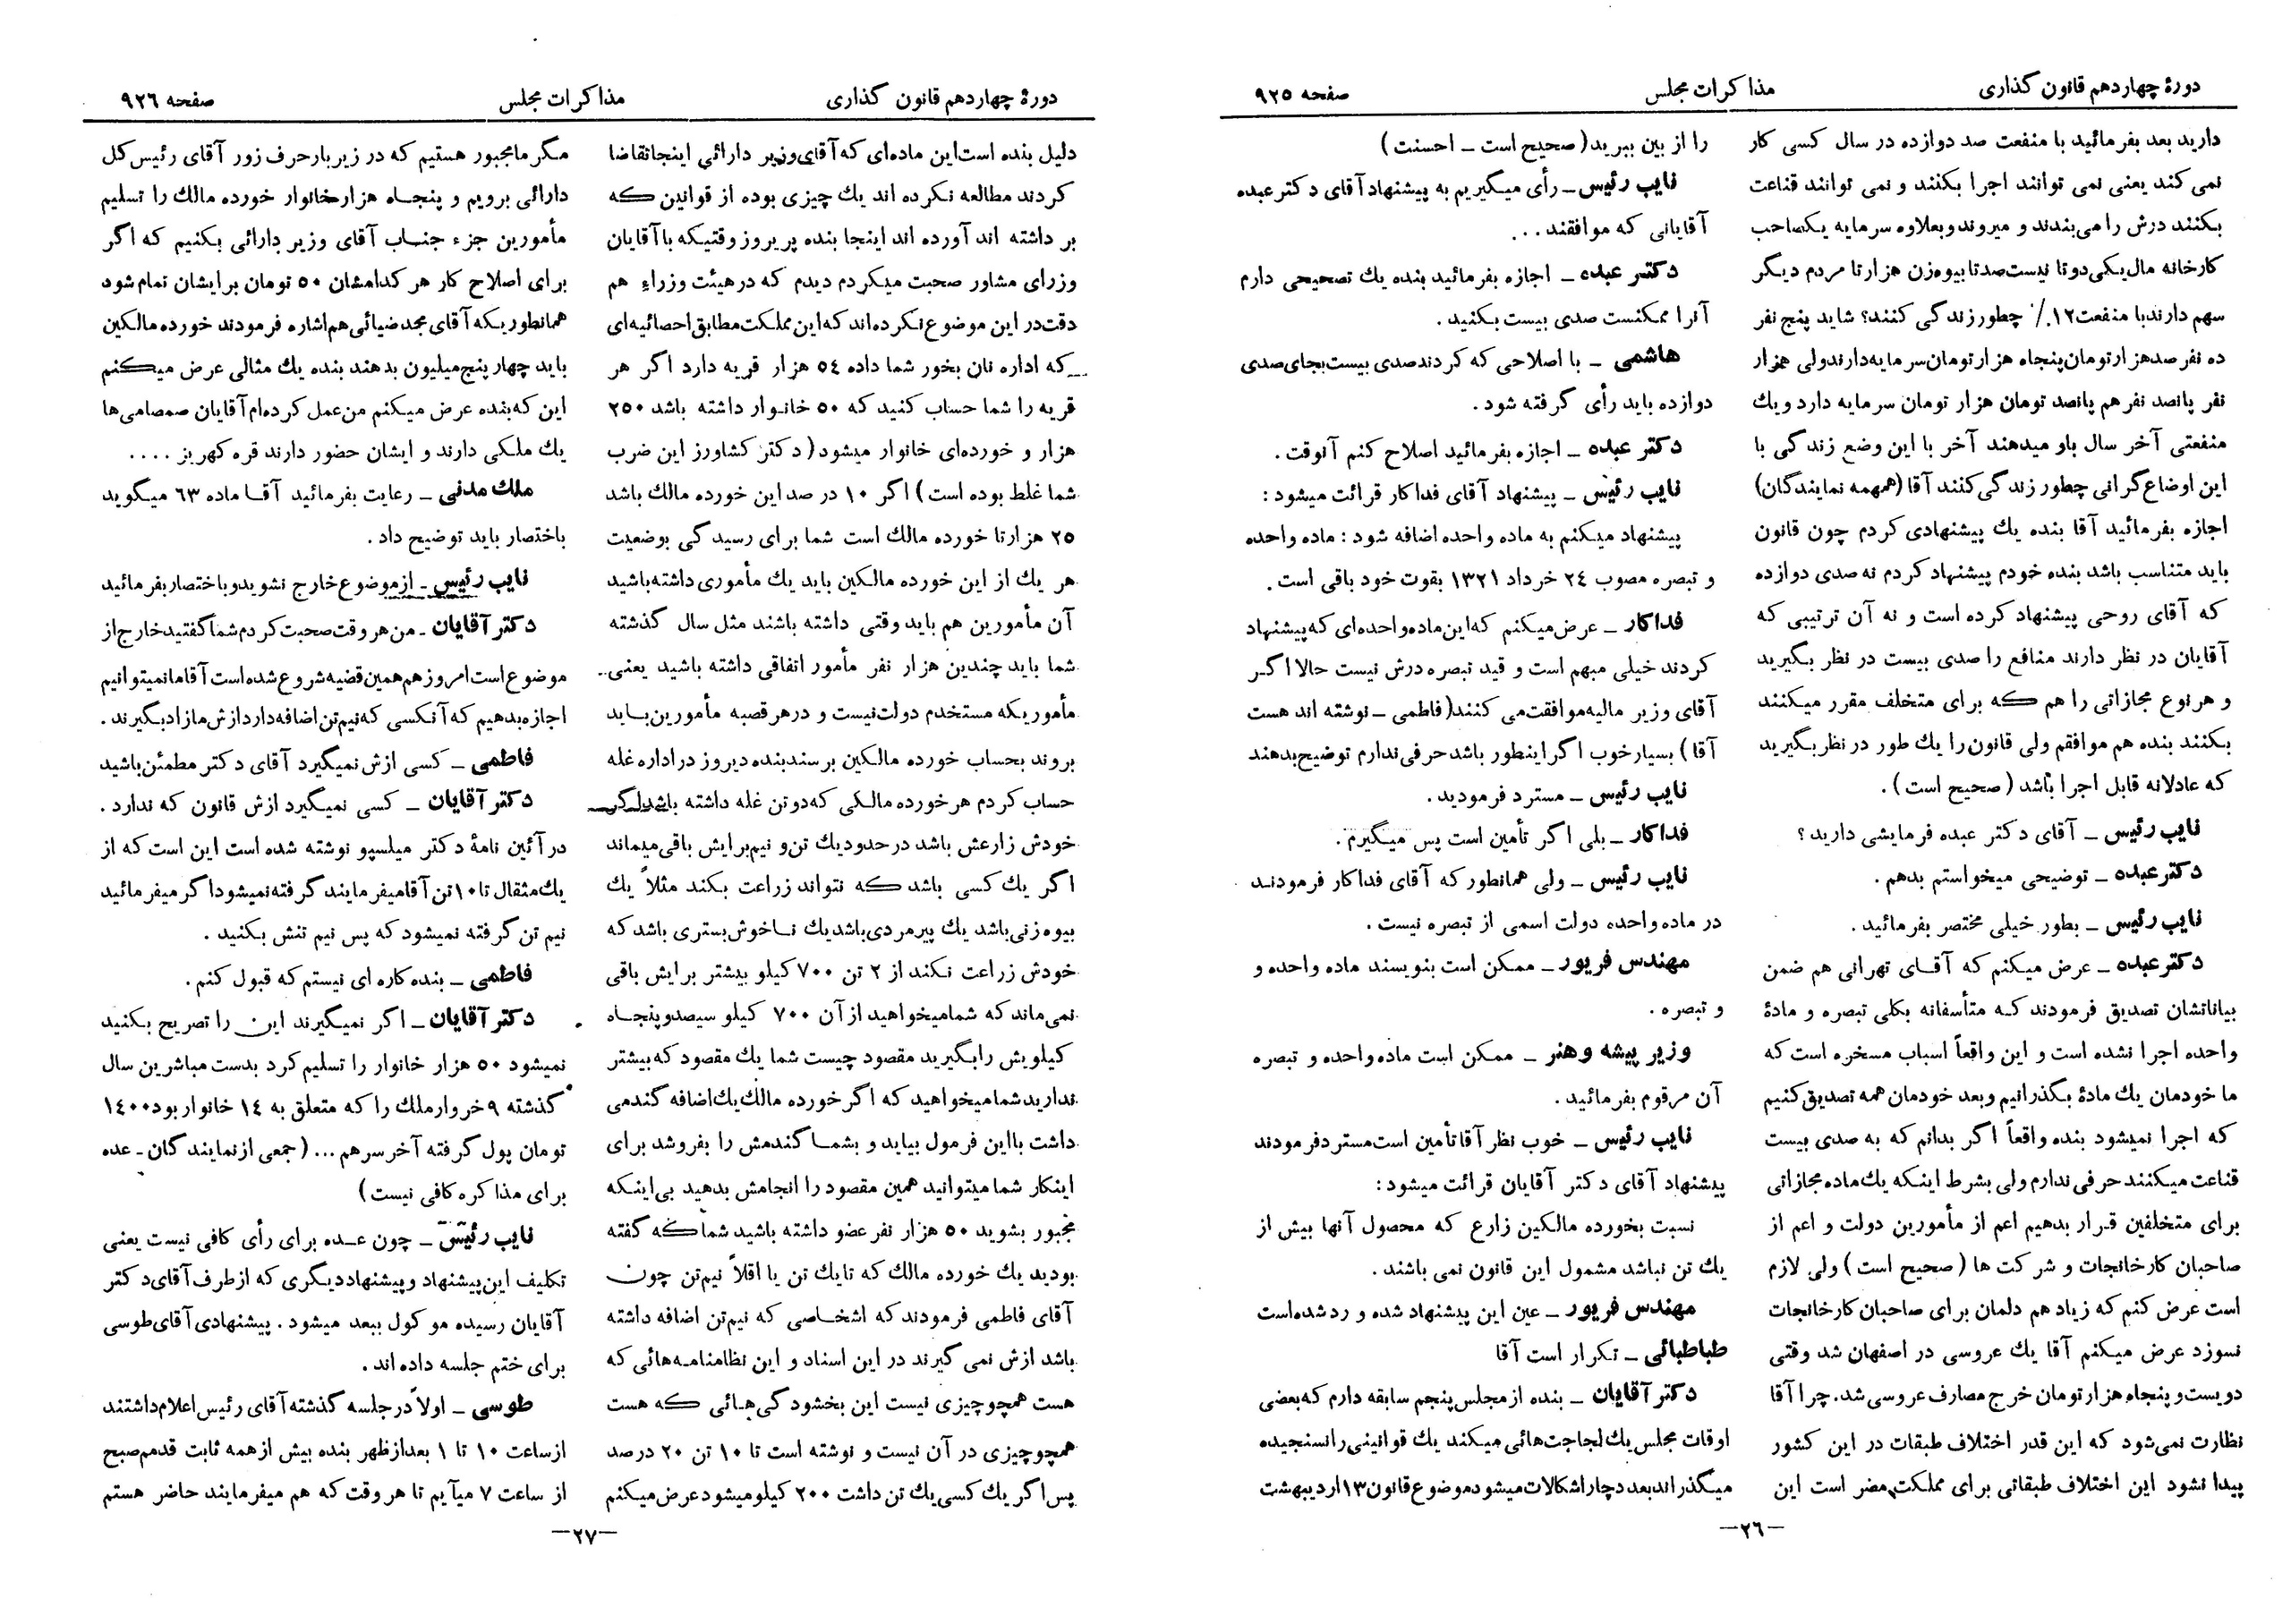 دورهٔ چهاردهم قانون گذاری
مذاکرات مجلس
صفحه ۹۲۵
دارید بعد بفرمائید با منفعت صد دوازده در سال کسی کار
نمی کند یعنی نمی توانند اجرا بکنند و نمی توانند قناعت
بکنند درش را می‌بندند و میروند و بعلاوه سرمایه یکصاحب
کارخانه مال یکی دوتا نیست صدتا بیوه‌زن هزارتا مردم دیگر
سهم دارند با منفعت ۱۲٪ چطور زندگی کنند؟ شاید پنج نفر
ده نفر صدهزار تومان پنجاه هزار تومان سرمایه دارند ولی هزار
نفر پانصد نفر هم پانصد تومان هزار تومان سرمایه دارد و یك
منفعتی آخر سال باو میدهند آخر با این وضع زندگی با
این اوضاع گرانی چطور زندگی کنند آقا (همهمه نمایندگان)
اجازه بفرمائید آقا بنده یك پیشنهادی کردم چون قانون
باید متناسب باشد بنده خودم پیشنهاد کردم نه صدی دوازده
که آقای روحی پیشنهاد کرده است و نه آن ترتیبی که
آقایان در نظر دارند منافع را صدی بیست در نظر بگیرید
و هر نوع مجازاتی را هم که برای متخلف مقرر میکنند
بکنند بنده هم موافقم ولی قانون را یك طور در نظر بگیرید
که عادلانه قابل اجرا باشد (صحیح است) .
نایب رئیس ـ آقای دکتر عبده فرمایشی دارید ؟
دکتر عبده ـ توضیحی میخواستم بدهم .
نایب رئیس ـ بطور خیلی مختصر بفرمائید .
دکتر عبده ـ عرض میکنم که آقای تهرانی هم ضمن
بیاناتشان تصدیق فرمودند که متأسفانه بکلی تبصره و مادهٔ
واحده اجرا نشده است و این واقعاً اسباب مسخره است که
ما خودمان یك مادهٔ بگذرانیم و بعد خودمان همه تصدیق کنیم
که اجرا نمیشود بنده واقعاً اگر بدانم که به صدی بیست
قناعت میکنند حرفی ندارم ولی بشرط اینکه یك ماده مجازاتی
برای متخلفین قرار بدهیم اعم از مأمورین دولت و اعم از
صاحبان کارخانجات و شرکت ها (صحیح است) ولی لازم
است عرض کنم که زیاد هم دلمان برای صاحبان کارخانجات
نسوزد عرض میکنم آقا یك عروسی در اصفهان شد وقتی
دویست و پنجاه هزار تومان خرج مصارف عروسی شد. چرا آقا
نظارت نمی‌شود که این قدر اختلاف طبقات در این کشور
پیدا نشود این اختلاف طبقاتی برای مملکت مضر است این
را از بین ببرید (صحیح است ـ احسنت)
نایب رئیس ـ رأی میگیریم به پیشنهاد آقای دکتر عبده
آقایانی که موافقند . . .
دکتر عبده ـ اجازه بفرمائید بنده یك تصحیحی دارم
آنرا ممکنست صدی بیست بکنید .
هاشمی ـ با اصلاحی که کردند صدی بیست بجای صدی
دوازده باید رأی گرفته شود .
دکتر عبده ـ اجازه بفرمائید اصلاح کنم آنوقت .
نایب رئیس ـ پیشنهاد آقای فداکار قرائت میشود :
پیشنهاد میکنم به ماده واحده اضافه شود : ماده واحده
و تبصره مصوب ۲۴ خرداد ۱۳۲۱ بقوت خود باقی است .
فداکار ـ عرض میکنم که این ماده واحده‌ای که پیشنهاد
کردند خیلی مبهم است و قید تبصره درش نیست حالا اگر
آقای وزیر مالیه موافقت می کنند (فاطمی ـ نوشته اند هست
آقا) بسیار خوب اگر اینطور باشد حرفی ندارم توضیح بدهند
نایب رئیس ـ مسترد فرمودید .
فداکار ـ بلی اگر تأمین است پس میگیرم .
نایب رئیس ـ ولی همانطور که آقای فداکار فرمودند
در ماده واحده دولت اسمی از تبصره نیست .
مهندس فریور ـ ممکن است بنویسند ماده واحده و
و تبصره .
وزیر پیشه و هنر ـ ممکن است ماده واحده و تبصره
آن مرقوم بفرمائید .
نایب رئیس ـ خوب نظر آقا تأمین است مسترد فرمودند
پیشنهاد آقای دکتر آقایان قرائت میشود :
نسبت بخورده مالکین زارع که محصول آنها بیش از
یك تن نباشد مشمول این قانون نمی باشند .
مهندس فریور ـ عین این پیشنهاد شده و رد شده‌است
طباطبائی ـ تکرار است آقا
دکتر آقایان ـ بنده از مجلس پنجم سابقه دارم که بعضی
اوقات مجلس یك لجاجت‌هائی میکند یك قوانینی را نسنجیده
میگذراند بعد دچار اشکالات میشود موضوع قانون ۱۳ اردیبهشت
ـ۲۶ـ
دورهٔ چهاردهم قانون گذاری
مذاکرات مجلس
صفحه ۹۲۶
دلیل بنده است این ماده‌ای که آقای وزیر دارائی اینجا تقاضا
کردند مطالعه نکرده اند یك چیزی بوده از قوانین که
بر داشته اند آورده اند اینجا بنده پریروز وقتیکه با آقایان
وزرای مشاور صحبت میکردم دیدم که در هیئت وزراء هم
دقت در این موضوع نکرده‌اند که این مملکت مطابق احصائیه‌ای
که اداره نان بخور شما داده ۵۴ هزار قریه دارد اگر هر
قریه را شما حساب کنید که ۵۰ خانوار داشته باشد ۲۵۰
هزار و خورده‌ای خانوار میشود (دکتر کشاورز این ضرب
شما غلط بوده است) اگر ۱۰ در صد این خورده مالك باشد
۲۵ هزارتا خورده مالك است شما برای رسیدگی بوضعیت
هر یك از این خورده مالکین باید یك مأموری داشته باشید
آن مأمورین هم باید وقتی داشته باشند مثل سال گذشته
شما باید چندین هزار نفر مأمور اتفاقی داشته باشید یعنی
مأموریکه مستخدم دولت نیست و در هر قصبه مأمورین باید
بروند بحساب خورده مالکین برسند بنده دیروز در اداره غله
حساب کردم هر خورده مالکی که دو تن غله داشته باشد اگر
خودش زارعش باشد در حدود یك تن و نیم برایش باقی میماند
اگر یك کسی باشد که نتواند زراعت بکند مثلاً یك
بیوه زنی باشد یك پیرمردی باشد یك ناخوش بستری باشد که
خودش زراعت نکند از ۲ تن ۷۰۰ کیلو بیشتر برایش باقی
نمی‌ماند که شما میخواهید از آن ۷۰۰ کیلو سیصد و پنجاه
کیلویش را بگیرید مقصود چیست شما یك مقصود که بیشتر
ندارید شما میخواهید که اگر خورده مالك یك اضافه گندمی
داشت با این فرمول بیاید و بشما گندمش را بفروشد برای
اینکار شما میتوانید همین مقصود را انجامش بدهید بی‌اینکه
مجبور بشوید ۵۰ هزار نفر عضو داشته باشید شما که گفته
بودید یك خورده مالك که تا یك تن یا اقلاً نیم‌تن چون
آقای فاطمی فرمودند که اشخاصی که نیم‌تن اضافه داشته
باشد ازش نمی گیرند در این اسناد و این نظامنامه‌هائی که
هست همچو چیزی نیست این بخشودگی‌هائی که هست
همچو چیزی در آن نیست و نوشته است تا ۱۰ تن ۲۰ درصد
پس اگر یك کسی یك تن داشت ۲۰۰ کیلو میشود عرض میکنم
مگر ما مجبور هستیم که در زیر بار حرف زور آقای رئیس کل
دارائی برویم و پنجاه هزار خانوار خورده مالك را تسلیم
مأمورین جزء جناب آقای وزیر دارائی بکنیم که اگر
برای اصلاح کار هر کدامشان ۵۰ تومان برایشان تمام شود
همانطوریکه آقای مجد ضیائی هم اشاره فرمودند خورده مالکین
باید چهار پنج میلیون بدهند بنده یك مثالی عرض میکنم
این که بنده عرض میکنم من عمل کرده‌ام آقایان صمصامی‌ها
یك ملکی دارند و ایشان حضور دارند قره کهریز . . . .
ملك مدنی ـ رعایت بفرمائید آقا ماده ۶۳ میگوید
باختصار باید توضیح داد .
نایب رئیس ـ از موضوع خارج نشوید و باختصار بفرمائید
دکتر آقایان ـ من هر وقت صحبت کردم شما گفتید خارج از
موضوع است امروز هم همین قضیه شروع شده است آقا ما نمیتوانیم
اجازه بدهیم که آنکسی که نیم‌تن اضافه دارد ازش مازاد بگیرند .
فاطمی ـ کسی ازش نمیگیرد آقای دکتر مطمئن باشید
دکتر آقایان ـ کسی نمیگیرد ازش قانون که ندارد .
در آئین نامهٔ دکتر میلسپو نوشته شده است این است که از
یك مثقال تا ۱۰ تن آقا میفرمایند گرفته نمیشود اگر میفرمائید
نیم تن گرفته نمیشود که پس نیم تنش بکنید .
فاطمی ـ بنده کاره ای نیستم که قبول کنم .
دکتر آقایان ـ اگر نمیگیرند این را تصریح بکنید
نمیشود ۵۰ هزار خانوار را تسلیم کرد بدست مباشرین سال
گذشته ۹ خروار ملك را که متعلق به ۱۴ خانوار بود ۱۴۰۰
تومان پول گرفته آخر سر هم ... (جمعی از نمایندگان ـ عده
برای مذاکره کافی نیست)
نایب رئیس ـ چون عده برای رأی کافی نیست یعنی
تکلیف این پیشنهاد و پیشنهاد دیگری که از طرف آقای دکتر
آقایان رسیده موکول ببعد میشود . پیشنهادی آقای طوسی
برای ختم جلسه داده اند .
طوسی ـ اولاً در جلسه گذشته آقای رئیس اعلام داشتند
از ساعت ۱۰ تا ۱ بعد از ظهر بنده بیش از همه ثابت قدمم صبح
از ساعت ۷ میآیم تا هر وقت که هم میفرمایند حاضر هستم
ـ۲۷ـ